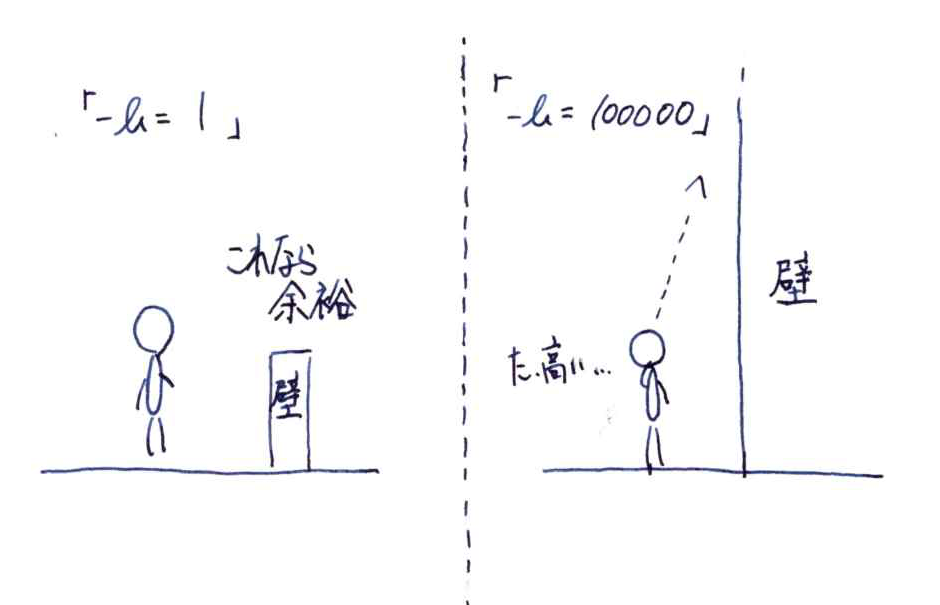 「-h= 1」
これなら
余裕
壁
「-h= 100000」
た、高い…
壁